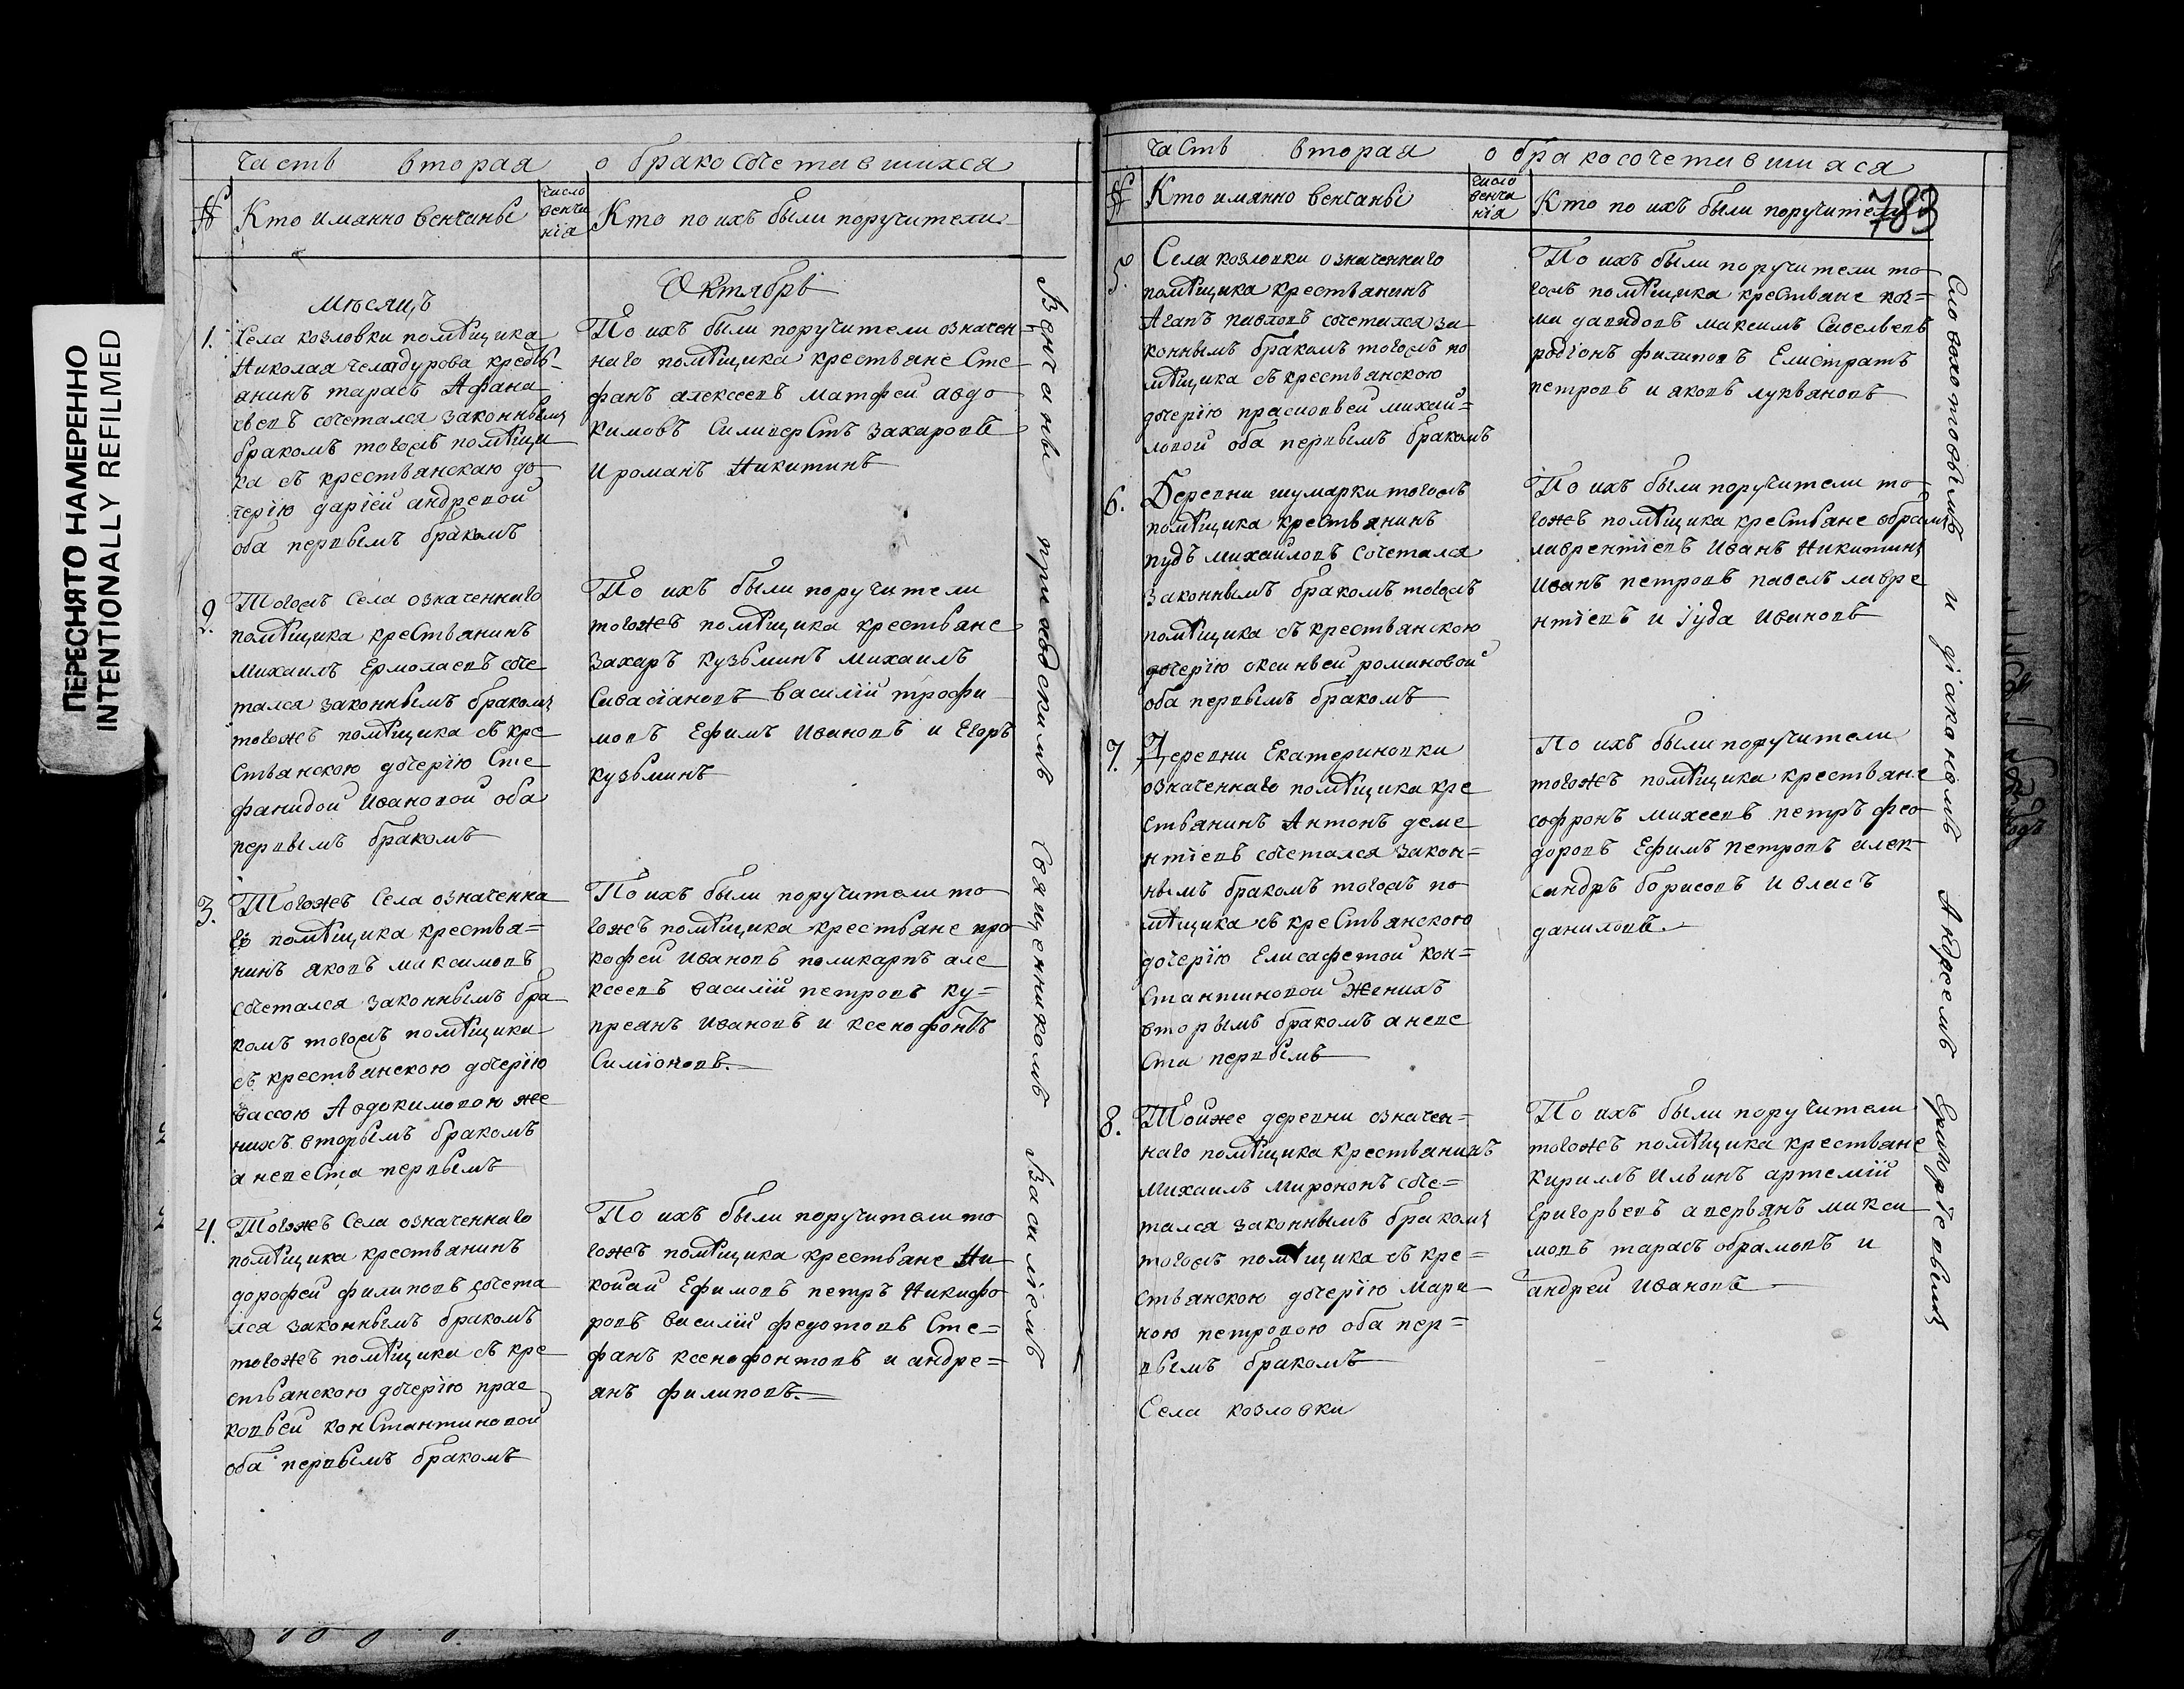 ПЕРЕСНЯТО НАМЕРЕННО
INTENTIONALLY REFILMED
часть вторая о бракосочетавшихся
№ Кто имянно венчаны
число венча нія
Кто по ихъ были поручители
Мѣсяцъ Октябрь
1. Села козловки помѣщика
Николая челюдурова кресть-
янинъ тарасъ Афана
сьевъ сочетался законнымъ
бракомъ тогожъ помѣщи
ка съ крестьянскаю до
черію даріей андревой
оба первымъ бракомъ
По ихъ были поручители означен-
наго помѣщика крестьяне Сте
фанъ алексеевъ матфей авдо
кимовъ Силиверстъ Захаровъ
И романъ Никитинъ
2. Тогожъ Села означеннаго
помѣщика крестьянинъ
Михаилъ Ермолаевъ соче
тался законнымъ бракомъ
тогожъ помѣщика съ кре
стьянскою дочерію Сте
фанидой Ивановой оба
первымъ бракомъ
По ихъ были поручители
тогожъ помѣщика крестьяне
Захаръ кузьминъ михаилъ
Сивасіановъ Василій трофи
мовъ Ефимъ Ивановъ и Егоръ
кузьминъ
3. Тогожъ Села означенна
го помѣщика крестья=
нинъ яковъ максимовъ
сочетался законнымъ бра
комъ тогожъ помѣщика
съ крестьянскою дочерію
вассою Авдокимовою же
нихъ вторымъ бракомъ
а невеста первымъ
По ихъ были поручители то
гожъ помѣщика крестьяне про
кофей Ивановъ поликарпъ але
ксеевъ василій петровъ ку=
преянъ Ивановъ и ксенофонтъ
Симіоновъ.
4. Тогожъ Села означеннаго
помѣщика крестьянинъ
дорофей филиповъ сочета
лся законнымъ бракомъ
тогожъ помѣщика съ кре
стьянскою дочерію прас
ковьей константиновой
оба первымъ бракомъ
По ихъ были поручители то
гожъ помѣщика крестьяне Ни
колай Ефимовъ петръ Никифо
ровъ василій федотовъ Сте=
фанъ ксенофонтовъ и андре=
янъ филиповъ.
Венчаны приходскимъ Священникомъ Василіемъ
часть вторая о бракосочетавшихся
№ Кто имянно венчаны
число венча нія
Кто по ихъ были поручители
783
5. Села козловки означеннаго
помѣщика крестьянинъ
Агапъ павловъ сочетался за
коннымъ бракомъ тогожъ по
мѣщика съ крестьянскою
дочерію прасковьей михай=
ловой оба первымъ бракомъ
По ихъ были поручители то
гожъ помѣщика крестьяне коз=
ма давидовъ максимъ Савельевъ
родіонъ филиповъ Елистратъ
петровъ и яковъ лукьяновъ
6. Деревни шумарки тогожъ
помѣщика крестьянинъ
пудъ михайловъ сочетался
Законнымъ бракомъ тогожъ
помѣщика съ крестьянскою
дочерію оксиньей романовой
оба первымъ бракомъ
По ихъ были поручители то
гожъ помѣщика крестьяне абрамъ
лаврентіевъ Иванъ Никитинъ
Иванъ петровъ павелъ лавре
нтіевъ и іуда Ивановъ
7. Деревни Екатериновки
означеннаго помѣщика кре
стьянинъ Антонъ деме
нтіевъ сочетался закон=
нымъ бракомъ тогожъ по
мѣщика съ крестьянскою
дочерію Елисафетой кон=
стантиновой женихъ
вторымъ бракомъ а неве
ста первымъ
По ихъ были поручители
тогожъ помѣщика крестьяне
софронъ михеевъ петръ фео
доровъ Ефимъ петровъ алек
сандръ борисовъ и власъ
даниловъ.
8. Тойже деревни означен=
наго помѣщика крестьянинъ
михаилъ мирононъ соче=
тался законнымъ бракомъ
тогожъ помѣщика съ кре=
стьянскою дочерію мари
ною петровою оба пер=
вымъ бракомъ
Села козловки
По ихъ были поручители
тогожъ помѣщика крестьяне
кириллъ Ильинъ артемій
Григорьевъ аверьянъ макси
мовъ тарасъ абрамовъ и
андрей Ивановъ
и діакономъ Андреемъ Григоріевымъ